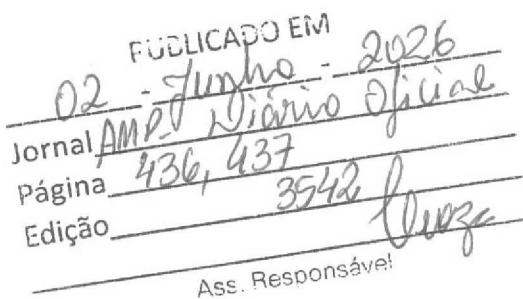 PUBLICADO EM
02 - Junho - 2026
Jornal AMP - Diário Oficial
Página 436, 437
Edição 3542
Ass. Responsável